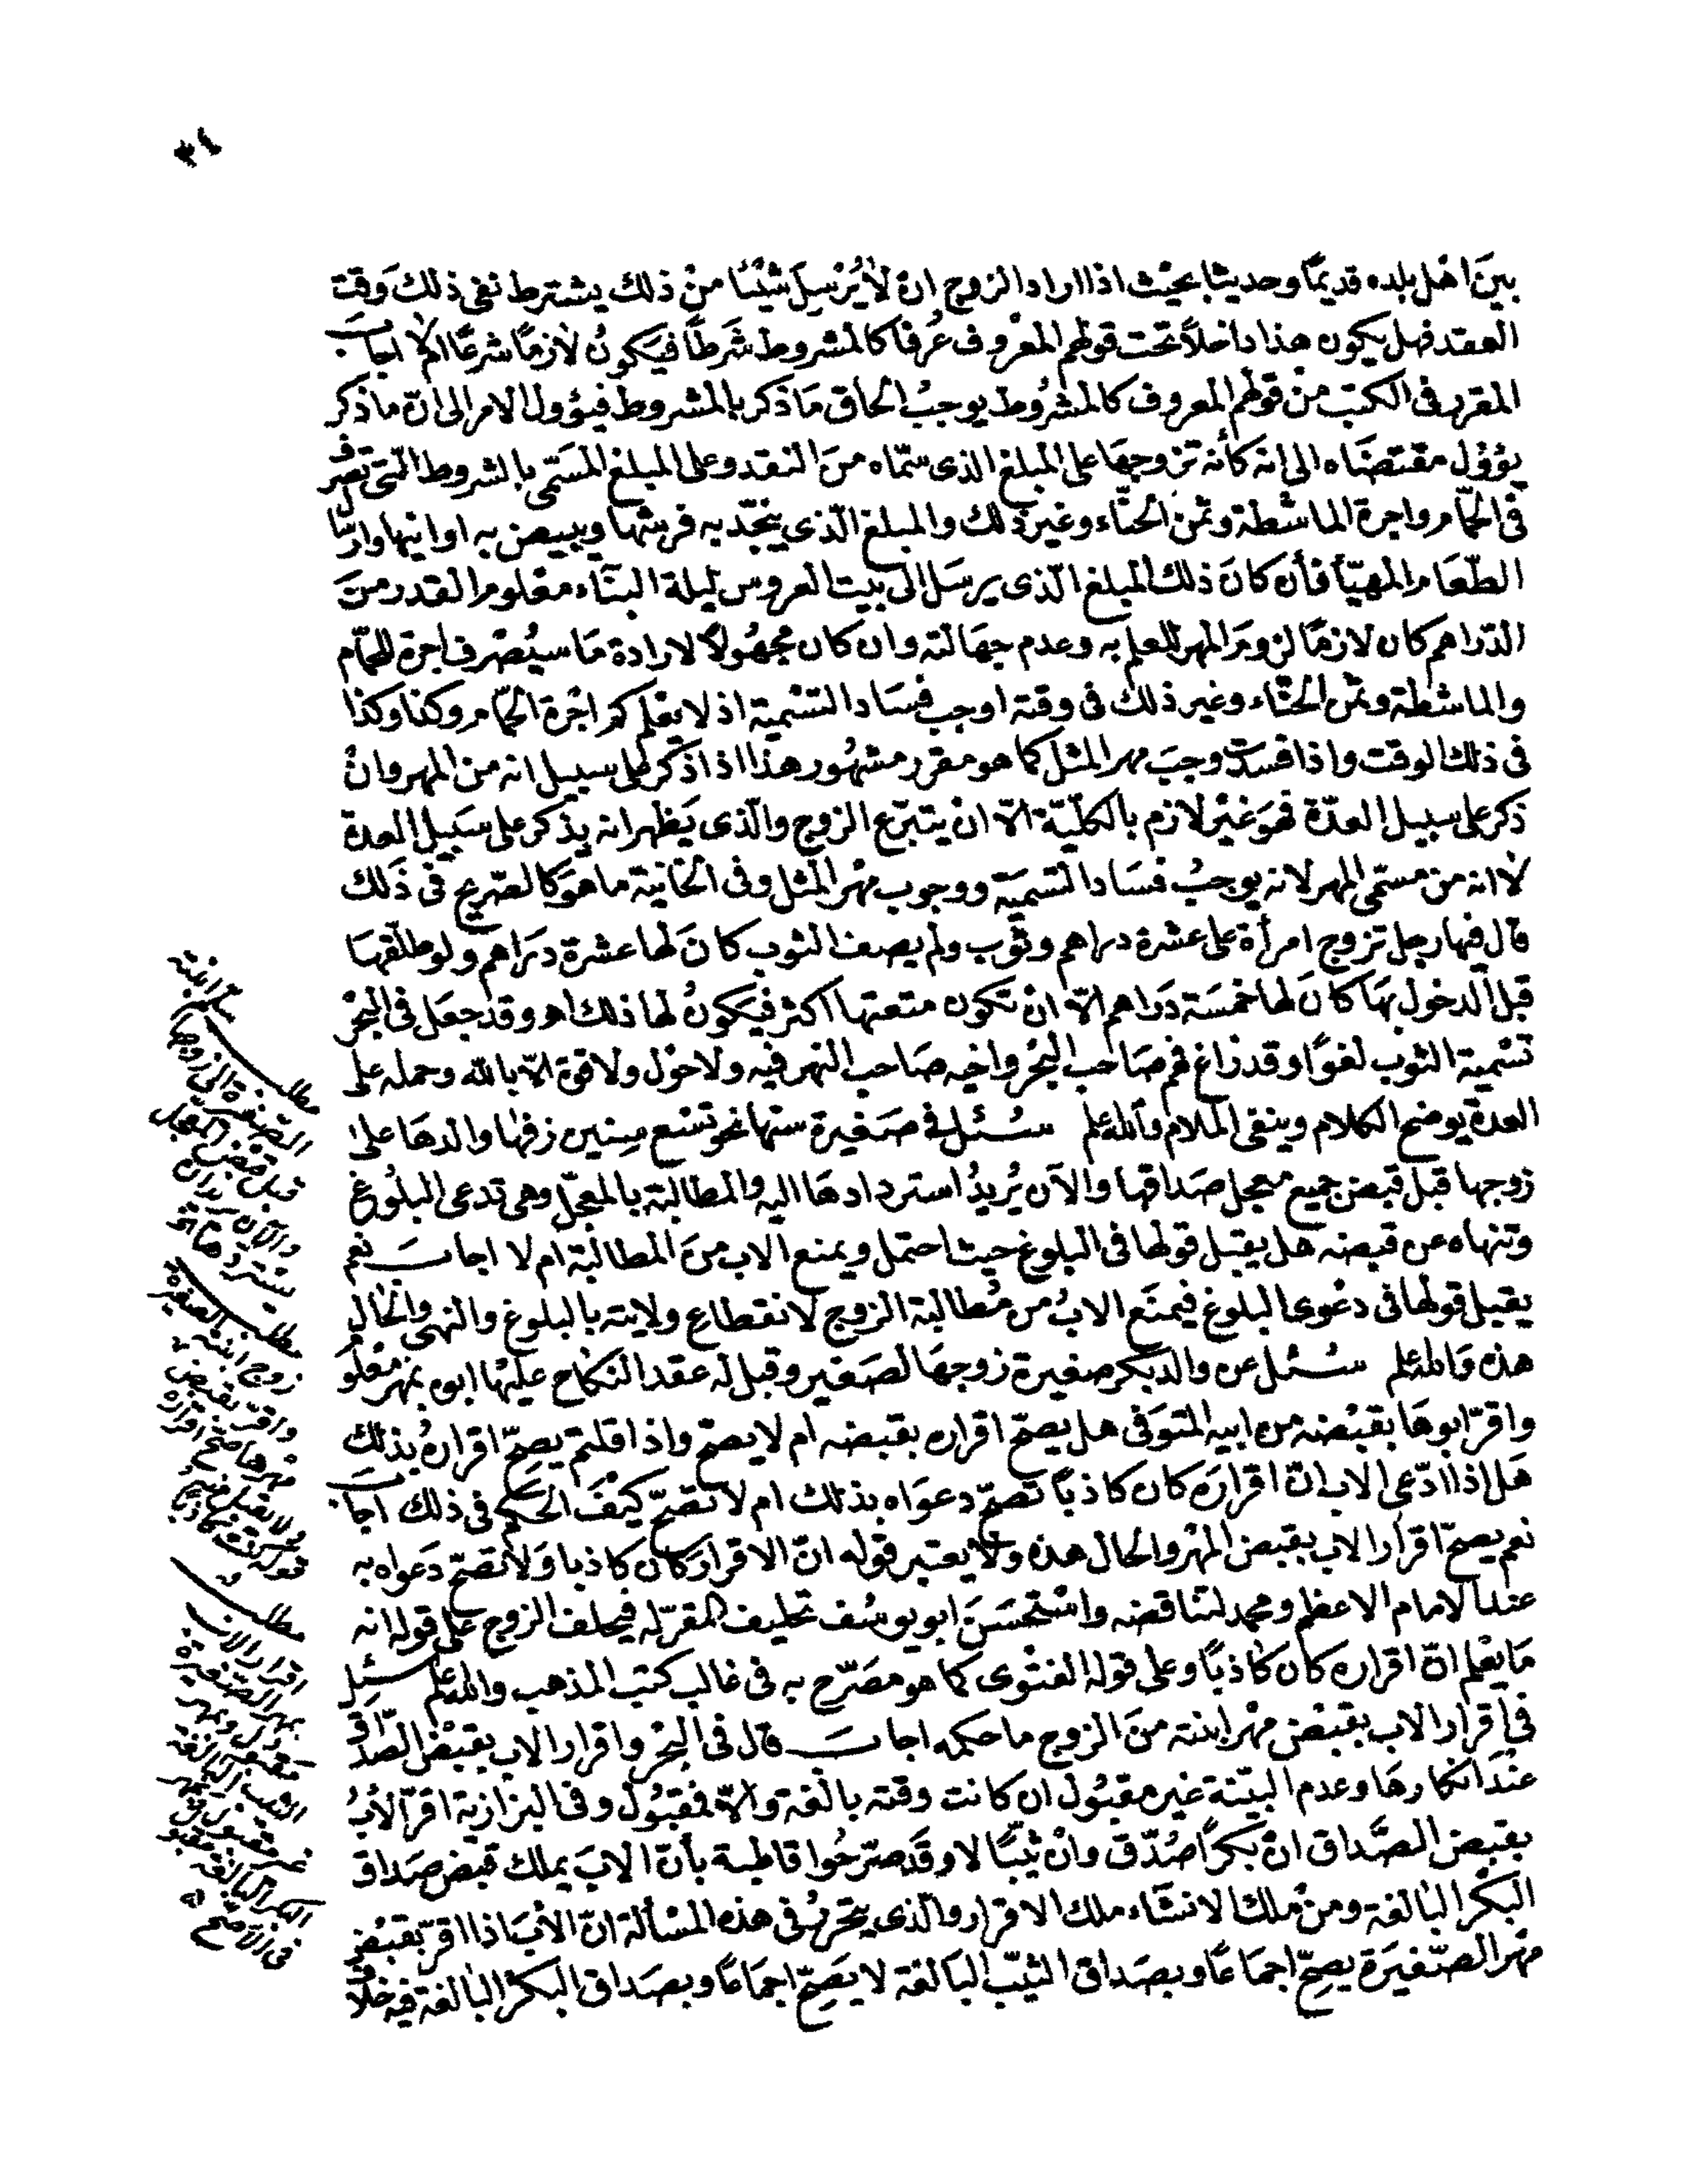 ٣٤
بين اهل بلده قديما وحديثا بحيث اذا اراد الزوج ان لا يرسل شيئا من ذلك يشترط نفى ذلك وقت
العقد فهل يكون هذا داخلا تحت قولهم المعروف عرفا كالمشروط شرطا فيكون لازما شرعا ام لا اجاب
المقرر فى الكتب من قولهم المعروف كالمشروط يوجب الحاق ما ذكر بالمشروط فيؤول الامر الى ان ما ذكر
يؤول مقتضاه الى انه كأنه تزوجها على المبلغ الذى سماه من النقد وعلى المبلغ المسمى بالشروط التى تصرف
فى الحمام واجرة الماشطة وثمن الحناء وغير ذلك والمبلغ الذى ينجد به فرشها ويبيض به اوانيها وامّا
الطعام المهيأ فأن كان ذلك المبلغ الذى يرسل الى بيت العروس ليلة البناء معلوم القدر من
الدراهم كان لازما لزوم المهر للعلم به وعدم جهالته وان كان مجهولا لارادة ما سيصرف اجرة للحمام
والماشطة وثمن الحناء وغير ذلك فى وقته اوجب فساد التسمية اذ لا يعلم كم اجرة الحمام وكذا وكذا
فى ذلك الوقت واذا فسدت وجب مهر المثل كما هو مقرر مشهور هذا اذا ذكر على سبيل انه من المهر وان
ذكر على سبيل العدة فهو غير لازم بالكلية الا ان يتبرع الزوج والذى يظهر انه يذكر على سبيل العدة
لا انه من مسمى المهر لانه يوجب فساد التسمية ووجوب مهر المثل وفى الخانية ما هو كالصريح فى ذلك
قال فيها رجل تزوج امرأة على عشرة دراهم وثوب ولم يصف الثوب كان لها عشرة دراهم ولو طلقها
قبل الدخول بها كان لها خمسة دراهم الا ان تكون متعتها اكثر فيكون لها ذلك اهـ وقد جعل فى البحر
تسمية الثوب لغوا وقد زاغ فهم صاحب البحر واخيه صاحب النهر فيه ولا حول ولا قوة الا بالله وحمله على
العدة يوضح الكلام وينفى الملام والله اعلم سئل فى صغيرة سنها نحو تسع سنين زفها والدها على
زوجها قبل قبض جميع معجل صداقها والآن يريد استردادها اليه والمطالبة بالمعجل وهى تدعى البلوغ
وتنهاه عن قبضه هل يقبل قولها فى البلوغ حيث احتمل ويمنع الاب من المطالبة ام لا اجاب نعم
يقبل قولها فى دعوى البلوغ فيمنع الاب من مطالبة الزوج لانقطاع ولايته بالبلوغ والنهى والحال
هذه والله اعلم سئل عن والد بكر صغيرة زوجها لصغير وقبل له عقد النكاح عليها ابوه بمهر معلوم
واقر ابوها بقبضه من ابيه المتوفى هل يصح اقراره بقبضه ام لا يصح واذا قلتم يصح اقراره بذلك
هل اذا ادعى الاب ان اقراره كان كاذبا تصح دعواه بذلك ام لا تصح كيف الحكم فى ذلك اجاب
نعم يصح اقرار الاب بقبض المهر والحال هذه ولا يعتبر قوله ان الاقرار كان كاذبا ولا تصح دعواه به
عند الامام الاعظم ومحمد لتناقضه واستحسن ابو يوسف تحليف المقر له فيحلف الزوج على قوله انه
ما يعلم ان اقراره كان كاذبا وعلى قوله الفتوى كما هو مصرح به فى غالب كتب المذهب والله اعلم سئل
فى اقرار الاب بقبض مهر ابنته من الزوج ما حكمه اجاب قال فى البحر واقرار الاب بقبض الصداق
عند انكارها وعدم البينة غير مقبول ان كانت وقته بالغة والا فمقبول وفى البزازية اقر الاب
بقبض الصداق ان بكرا صدق وان ثيبا لا وقد صرحوا قاطبة بأن الاب يملك قبض صداق
البكر البالغة ومن ملك الانشاء ملك الاقرار والذى يتحرر فى هذه المسألة ان الاب اذا اقر بقبض
مهر الصغيرة يصح اجماعا وبصداق الثيب البالغة لا يصح اجماعا وبصداق البكر البالغة فيه خلاف
مطلب
الصغيرة الى زوجها
قبل قبض المعجل
والآن يريد ان
يستردها
مطلب
زوج ابنته الصغيرة
واقر بقبض
مهرها صح اقراره
ولا يقبل
قوله كنت كاذبا
مطلب
اقرار الاب
بمهر الصغيرة
مقبول وبمهر
الثيب البالغة
غير مقبول وبمهر
البكر البالغة مقبول
فى الاصح